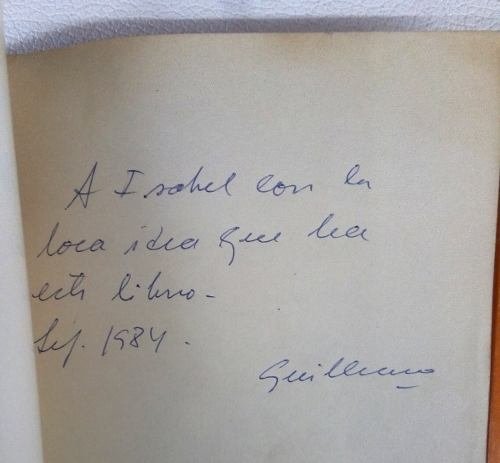 A Isabel con la
loca idea que lea
este libro.
Sep. 1984.
Guillermo